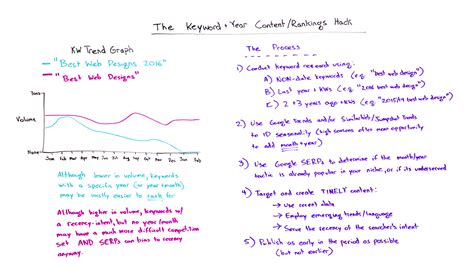 The Keyword + Year Content/Rankings Hack
KW Trend Graph
"Best Web Designs 2016"
"Best Web Designs"
Tons
Volume
None
June Feb Mar Apr May June July Aug Sep Oct Nov Dec Jan Feb
Although lower in volume, keywords
with a specific year (or year/month)
may be vastly easier to rank for
Although higher in volume, keywords w/
a recency-intent, but no year/month
may have a much more difficult competition
set AND SERPs can bias to recency
anyway.
The Process
1) Conduct keyword research using:
A) NON-date keywords (e.g. "best web design")
B) Last year + KWs (e.g. "2016 best web design")
C) 2+3 years ago + KWs (e.g. "2015/14 best web design")
2) Use Google Trends and/or SimilarWeb/Jumpshot Trends
to ID seasonality (high seasons offer more opportunity
to add month + year)
3) Use Google SERPs to determine if the month/year
tactic is already popular in your niche, or if its underused
4) Target and create TIMELY content:
→ Use recent data
→ Employ emerging trends/language
→ Serve the recency of the searcher's intent
5) Publish as early in the period as possible
(but not earlier)